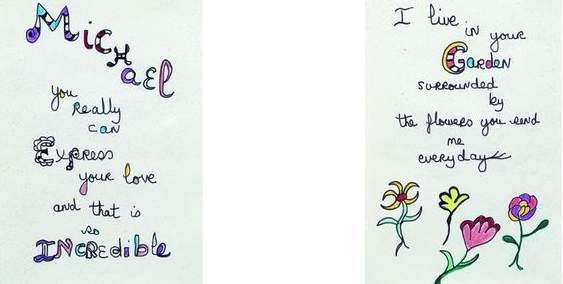 MicHAEL
you
Really
can
Express
your love
and that is
so
INCREdible
I live
in your
GaRdEN
surrounded
by
the flowers you send
me
everyday